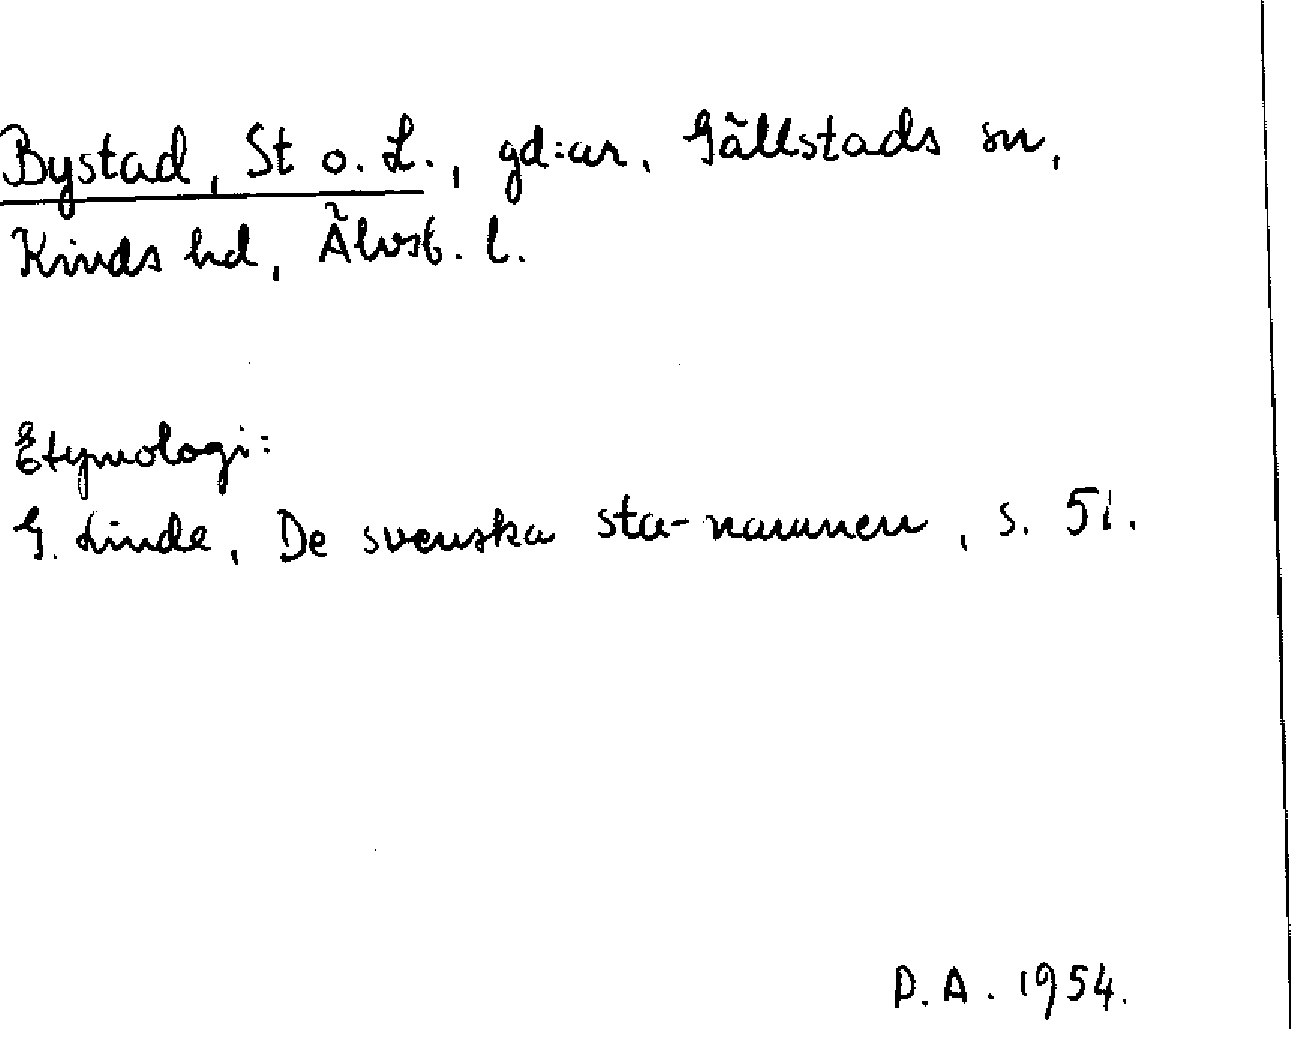 Bystad, St o. L., gd:ar, Gällstads sn,
Kinds hd, Älvsb. l.
Etymologi:
G. Linde, De svenska sta-namnen, s. 51.
D.A. 1954.